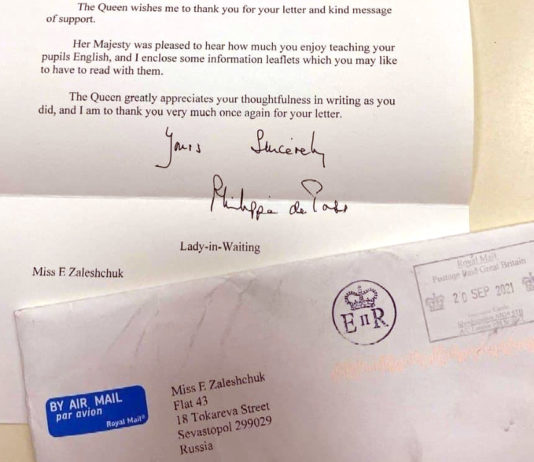 The Queen wishes me to thank you for your letter and kind message
of support.
Her Majesty was pleased to hear how much you enjoy teaching your
pupils English, and I enclose some information leaflets which you may like
to have to read with them.
The Queen greatly appreciates your thoughtfulness in writing as you
did, and I am to thank you very much once again for your letter.
Yours Sincerely
Philippa de Pass
Lady-in-Waiting
Miss F. Zaleshchuk
Royal Mail
Postage Paid Great Britain
20 SEP 2021
E II R
BY AIR MAIL
par avion
Royal Mail
Miss F. Zaleshchuk
Flat 43
18 Tokareva Street
Sevastopol 299029
Russia